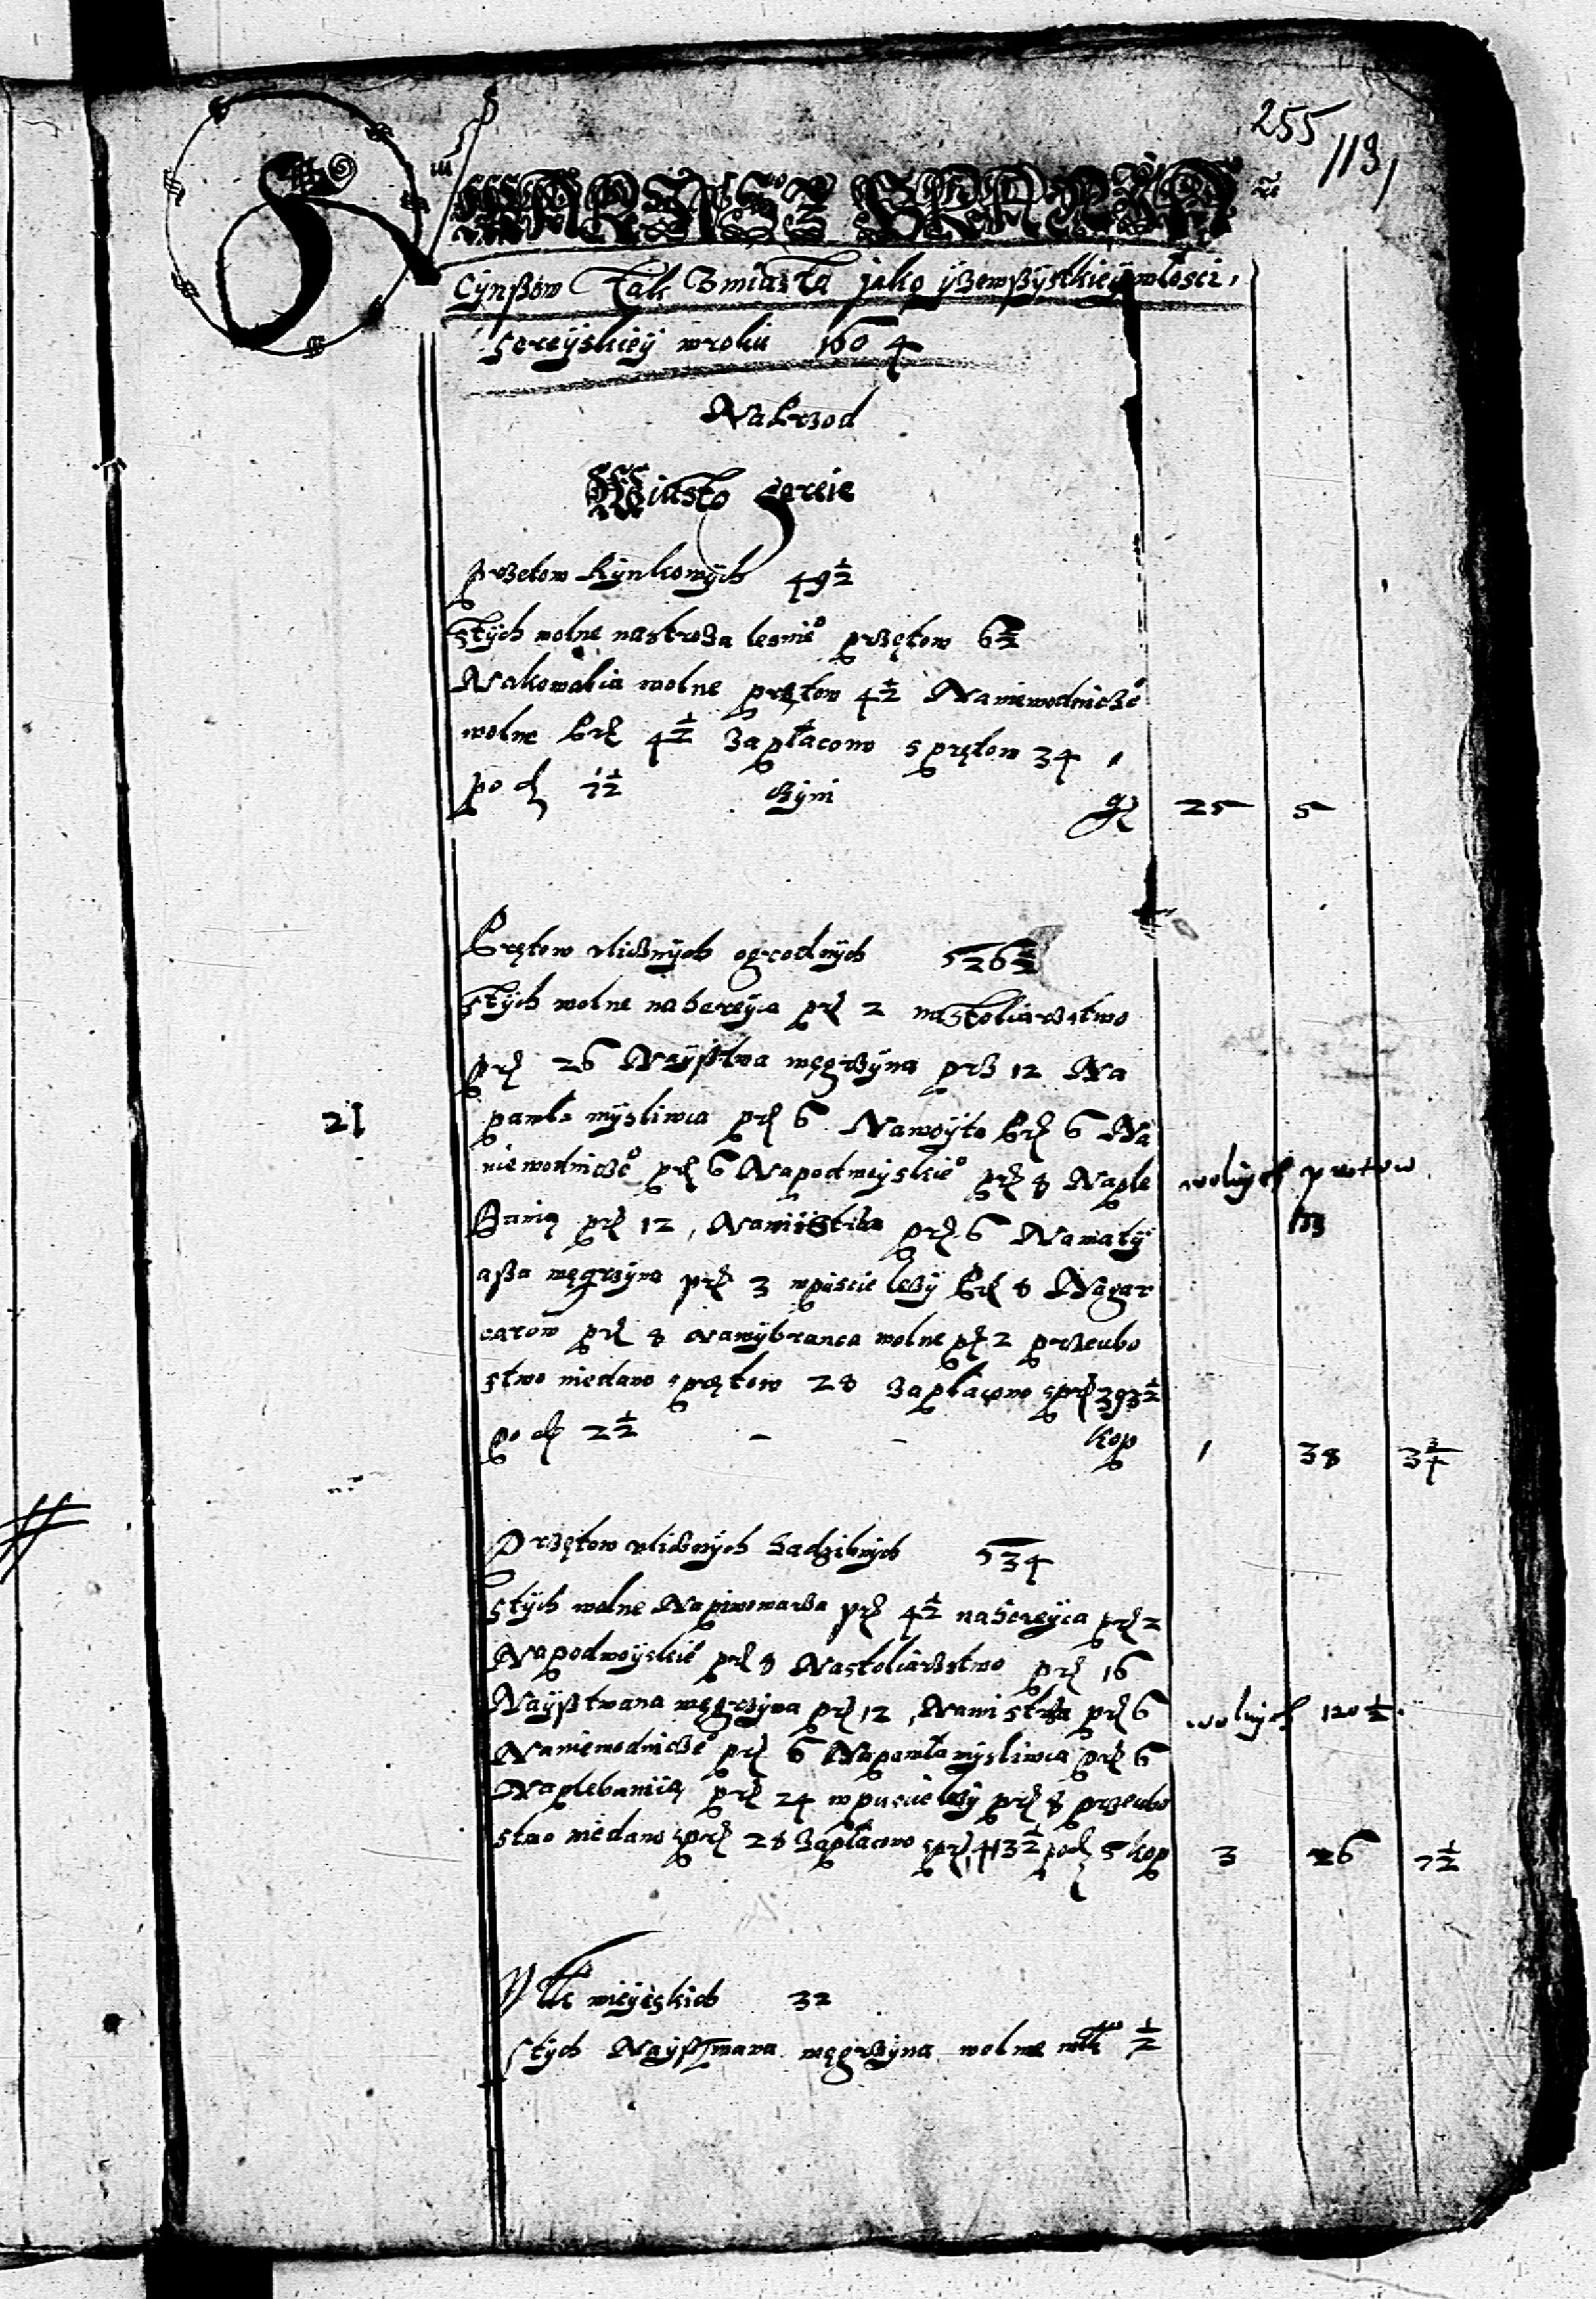 255
1131
Cynßow Tak Zmiasta jako yzewßystkiey włosci,
Sereyskiey wroku 1604
Naprzod
Miasto Sereie
przetow Rynkowych 49½
stych wolne nastroża lesnie° przętow 6½
Nakowalia wolne prętow 4½ Naniewodnicze°
wolne Prę 4½ zapłacono s prętow 34
po d 7½ czyni gr 25 5
Prętow vlicznych ogrodnych 526½
stych wolne na Sereyca prę 2 na stoliarzstwo
prę 26 Nayßtwa węgrzyna prz 12 Na
21
pawła mysliwca prę 6 Nawoyta Prę 6 Na
niewodnicze° prę 6 Napodwoyskie° prę 8 Naple
wolnych prętow
banią prę 12, Namistrza prę 6 Namaty
113
aßa węgrzyna prę 3 wpuscie leży Prę 8 Nagar
carow prę 8 nawybranca wolne prę 2 przeubo
stwo niedano sprętow 28 zapłacono sprę 393½
po d 2½ - - kop 1 38 3¾
Przętow vlicznych Sadzibnych 534
stych wolne Napiwowarza prę 4½ na Sereyca prę 2
Napodwoyskie° prę 8 Nastoliarzstwo prę 16
Nayßtwana węgrzyna prę 12, Namistrza prę 6
wolnych 120½
Naniewodnicze° prę 6 Napawła mysliwca prę 6
Naplebaniią prę 24 wpuscie leży prę 8 przeubo
stwo niedano sprę 28 zapłacono sprę 413½ po d 5 kop 3 26 7½
Włk mieyskich 32
stych Nayßtwana węgrzyna wolne włk ½